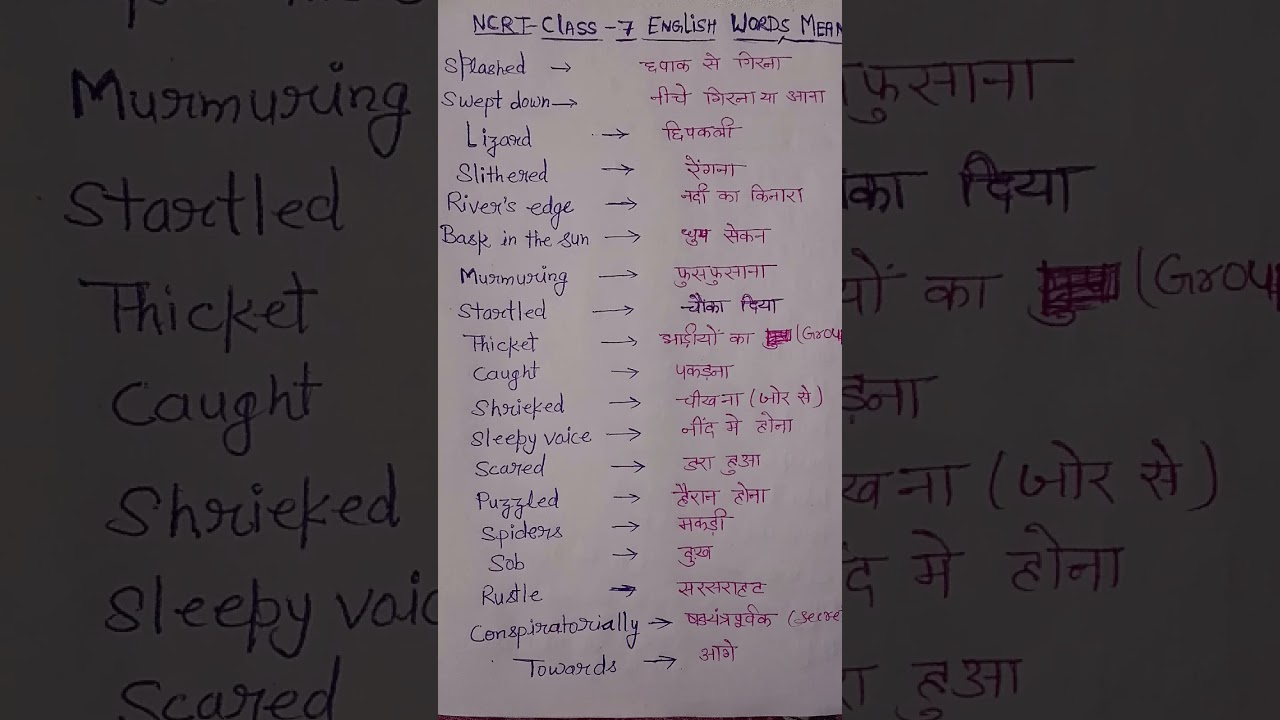 NCRT-CLASS-7 ENGLISH WORDS MEAN
Splashed → छपाक से गिरना
Swept down → नीचे गिरना या आना
Lizard → छिपकली
Slithered → रेंगना
River's edge → नदी का किनारा
Bask in the sun → धुप सेकन
Murmuring → फुसफुसाना
Startled → चौका दिया
Thicket → झाड़ीयों का (Grou
Caught → पकड़ना
Shrieked → चीखना (जोर से)
Sleepy voice → नींद मे होना
Scared → डरा हुआ
Puzzled → हैरान होना
Spiders → मकड़ी
Sob → दुख
Rustle → सरसराहट
Conspiratorially → षडयंत्रपूर्वक (secre
Towards → आगे